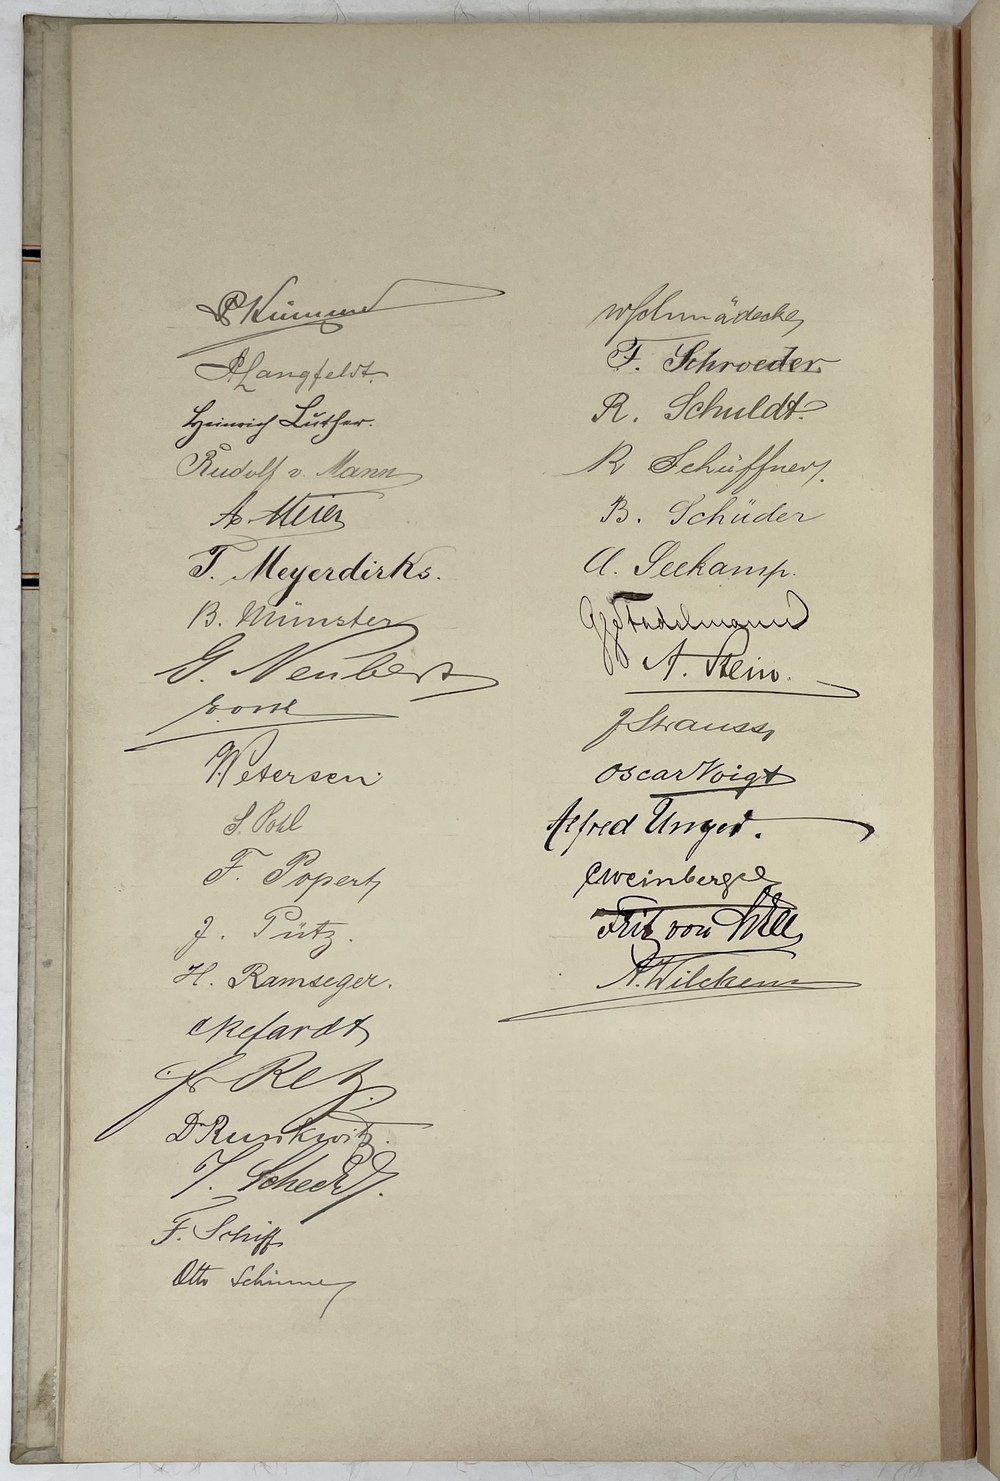 Kümmel
A Langfeldt.
Heinrich Luther.
Rudolf v. Mann
A. Meier
T. Meyerdirks.
B. Münster
G. Neubert
Petersen
S. Pohl
F. Popert
J. Pütz.
H. Ramseger.
Fr Retz.
Dr Runkwitz.
F. Schiff
Otto
W Schmädecke
F. Schroeder
R. Schuldt
R Schüffner.
B. Schüder
A. Seekamp.
Stadelmann
A. Stein.
J Strauss
Oscar Voigt
Alfred Unger.
C Weinberger
Fritz von
A. Wilckens